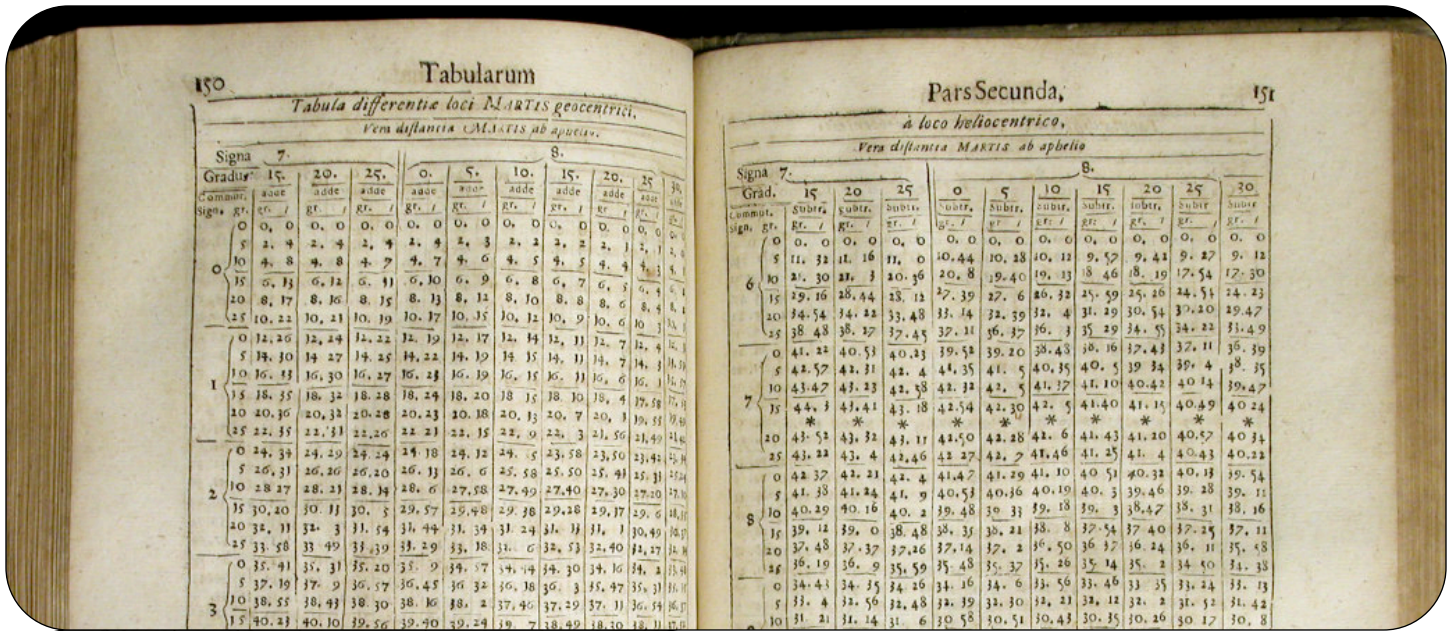 150 Tabularum
Tabula differentiæ loci MARTIS geocentrici,
Vera distantia MARTIS ab aphelio.
Signa 7. 8.
Gradus 15. 20. 25. 0. 5. 10. 15. 20. 25 30.
adde adde adde adde adde adde adde adde adde
Commut.
Sign. gr. gr. ′ gr. ′ gr. ′ gr. ′ gr. ′ gr. ′ gr. ′ gr. ′ gr. ′
0 0 0. 0 0. 0 0. 0 0. 0 0. 0 0. 0 0. 0 0. 0 0. 0
5 2. 4 2. 4 2. 4 2. 4 2. 3 2. 2 2. 2 2. 1 2. 1
10 4. 8 4. 8 4. 7 4. 7 4. 6 4. 5 4. 5 4. 4 4. 3
15 6. 13 6. 12 6. 11 6. 10 6. 9 6. 8 6. 7 6. 5 6. 4
20 8. 17 8. 16 8. 15 8. 13 8. 12 8. 10 8. 8 8. 6 8. 4
25 10. 22 10. 21 10. 19 10. 17 10. 15 10. 12 10. 9 10. 6 10 3
1 0 12. 26 12. 24 12. 22 12. 19 12. 17 12. 14 12. 11 12. 7 12. 4
5 14. 30 14 27 14. 25 14. 22 14. 19 14 15 14. 11 14. 7 14. 3
10 16. 33 16. 30 16. 27 16. 23 16. 19 16. 15 16. 11 16. 6 16. 1
15 18. 35 18. 32 18. 28 18. 24 18. 20 18 15 18. 10 18. 4 17. 58
20 20. 36 20. 32 20. 28 20. 23 20. 18 20. 13 20. 7 20. 1 19. 55
25 22. 35 22. 31 22. 26 22 21 22. 15 22. 9 22. 3 21. 56 21. 49
2 0 24. 34 24. 29 24. 24 24 18 24. 12 24. 5 23. 58 23. 50 23. 42
5 26. 31 26. 26 26. 20 26. 13 26. 6 25. 58 25. 50 25. 41 25. 33
10 28 27 28. 21 28. 14 28. 6 27. 58 27. 49 27. 40 27. 30 27. 20
15 30. 20 30. 13 30. 5 29. 57 29. 48 29. 38 29. 28 29. 17 29. 6
20 32. 11 32. 3 31. 54 31. 44 31. 34 31. 24 31. 13 31. 1 30. 49
25 33. 58 33 49 33. 39 33. 29 33. 18 31. 6 32. 53 32. 40 32. 27
3 0 35. 41 35. 31 35. 20 35. 9 34. 57 34. 44 34. 30 34. 16 34. 2
5 37. 19 37. 9 36. 57 36. 45 36 32 36. 18 36. 3 35. 47 35. 31
10 38. 55 38. 43 38. 30 38. 16 38. 2 37. 46 37. 29 37. 11 36. 54
15 40. 23 40. 10 39. 56 39. 40 39. 24 39. 7 38. 49 38. 30 38. 11
Pars Secunda, 151
à loco heliocentrico,
Vera distantia MARTIS ab aphelio
Signa 7. 8.
Grad. 15 20 25 0 5 10 15 20 25 30
subtr. subtr. subtr. subtr. subtr. subtr. subtr. subtr. subtr subtr
Commut.
Sign. gr. gr. ′ gr. ′ gr. ′ gr. ′ gr. ′ gr: ′ gr: ′ gr. ′ gr. ′ gr. ′
6 0 0. 0 0. 0 0. 0 0. 0 0. 0 0. 0 0. 0 0. 0 0. 0 0. 0
5 11. 32 11. 16 11. 0 10. 44 10. 28 10. 12 9. 57 9. 42 9. 27 9. 12
10 21. 30 21. 3 20. 36 20. 8 19. 40 19. 13 18 46 18. 19 17. 54 17. 30
15 29. 16 28. 44 28. 12 27. 39 27. 6 26. 32 25. 59 25. 26 24. 54 24. 23
20 34. 54 34. 22 33. 48 33. 14 32. 39 32. 4 31. 29 30. 54 30. 20 29. 47
25 38. 48 38. 17 37. 45 37. 11 36. 37 36. 3 35 29 34. 55 34. 22 33. 49
7 0 41. 22 40. 53 40. 23 39. 52 39. 20 38. 48 38. 16 37. 43 37. 11 36. 39
5 42. 57 42. 31 42. 4 41. 35 41. 5 40. 35 40. 5 39 34 39. 4 38. 35
10 43. 47 43. 23 42. 58 42. 32 42. 5 41. 37 41. 10 40. 42 40 14 39. 47
15 44. 3 43. 41 43. 18 42. 54 42. 30 42. 5 41. 40 41. 15 40. 49 40 24
* * * * * * * * *
20 43. 52 43. 32 43. 11 42. 50 42. 28 42. 6 41. 43 41. 20 40. 57 40 34
25 43. 22 43. 4 42. 46 42 27 42. 7 41. 46 41. 25 41. 4 40. 43 40. 22
8 0 42 37 42. 21 42. 4 41. 47 41. 29 41. 10 40 51 40. 32 40. 13 39. 54
5 41. 38 41. 24 41. 9 40. 53 40. 36 40. 19 40. 3 39. 46 39. 28 39. 11
10 40. 29 40. 16 40. 2 39. 48 39 33 39. 18 39. 3 38. 47 38. 31 38. 16
15 39. 12 39. 0 38. 48 38. 35 38. 21 38. 8 37. 54 37 40 37. 25 37. 11
20 37. 48 37. 37 37. 26 37. 14 37. 2 36. 50 36 37 36. 24 36. 11 35. 58
25 36. 19 36. 9 35. 59 35. 48 35. 37 35. 26 35. 14 35. 2 34 50 34. 38
0 34. 43 34. 35 34 26 34. 16 34. 6 33. 56 33. 46 33 35 33. 24 33. 13
5 33. 4 32. 56 32. 48 32. 39 32. 30 32. 21 32. 12 32. 2 31. 52 31. 42
10 31 21 31. 14 31. 6 30 58 30. 51 30. 43 30. 35 30. 26 30 17 30. 8